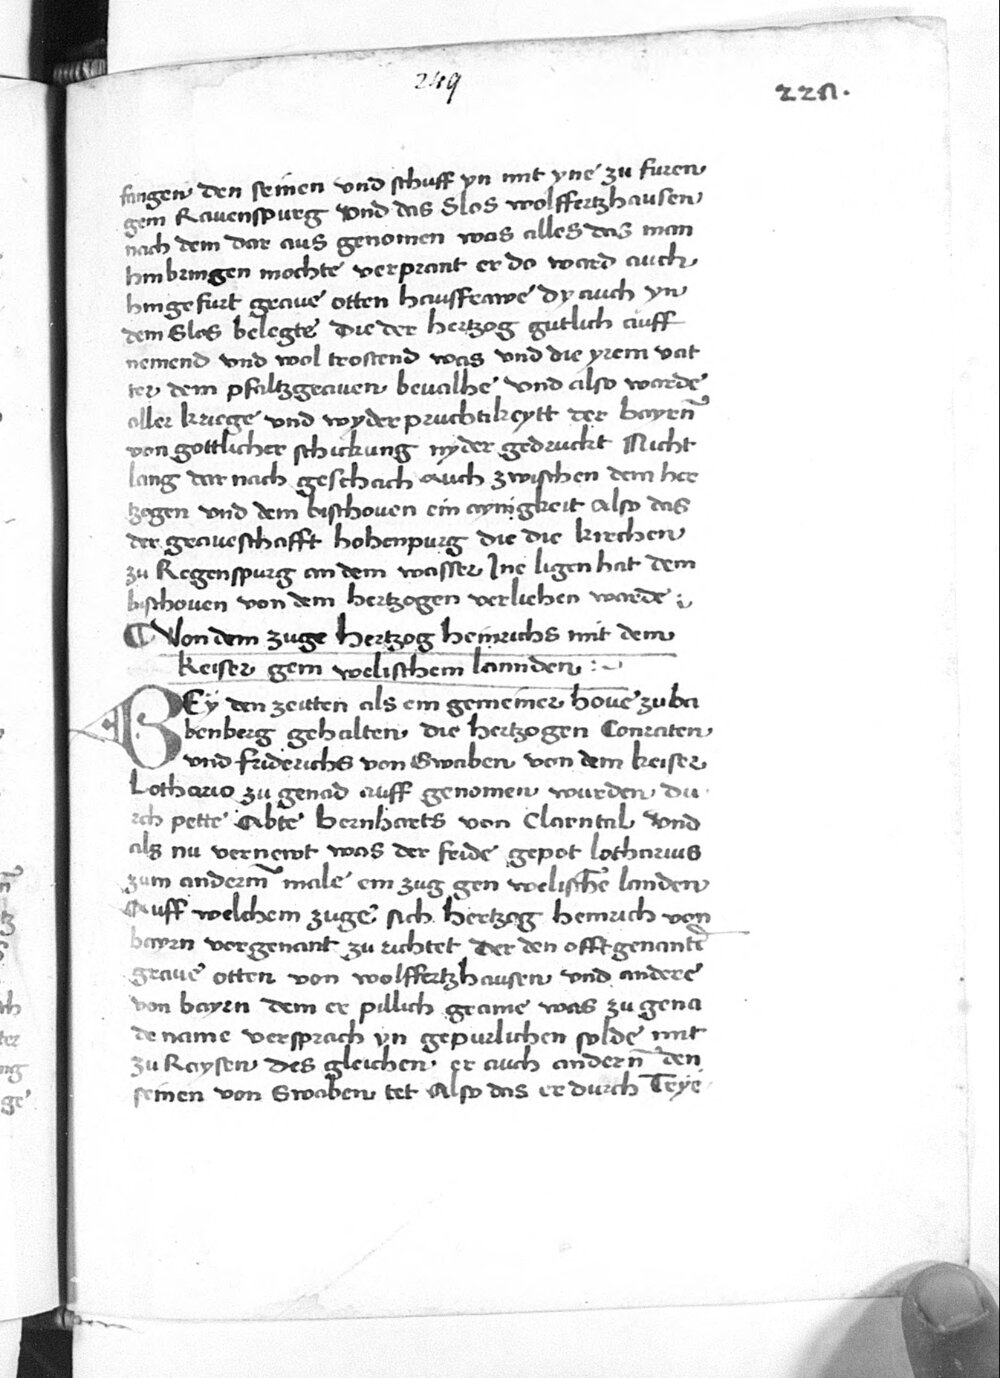 249
227.
fangen den seinen vnd schuff yn mit yne zu furen
gem Rauenspurg Vnd das Slos wolffertzhausen
nach dem dar aus genomen was alles das man
hinbringen mochte verprant er do ward auch
hingefurt graue otten hausfrawe dy auch yn
dem Slos belegte Die der hertzog gutlich auff
nemend vnd wol trostend was vnd die yrem vat
ter dem pfaltzgrauen beualhe vnd also warde
aller kriege vnd wyderpruchtikeytt der bayrn̄
von gottlicher schickung nyder gedruckt Nicht
lang dar nach geschach Auch zwischen dem her
tzogen vnd dem bischouen ein aynigkeit Also das
der graueschafft hohenpurg die die kirchen
zu Regenspurg an dem wasser Ine ligen hat dem
bischouen von dem hertzogen verlichen warde
Von dem zuge hertzog heinrichs mit dem
keiser gem welischem lannden
BEy den zeitten als ein gemeiner houe zu ba
benberg gehalten die hertzogen Conraten
vnd friderichs von Swaben von dem keiser
Lothario zu genad auff genomen wurden du
rch pette Abte bernharts von Clarntal Vnd
als nu vernewt was der feide gepot lotharius
zum andernn̄ male ein zug gen welischē landen
Auff welchem zuge sich hertzog heinrich von
bayrn vorgenant zu richtet Der den offtgenantē
graue otten von wolffertzhausen vnd andere
von bayrn dem er pillich grame was zu gena
de name versprach yn gepurlichen solde mit
zu Raysen des gleichen er auch andern̄ den
seinen von Swaben tet Also das er durch Trye